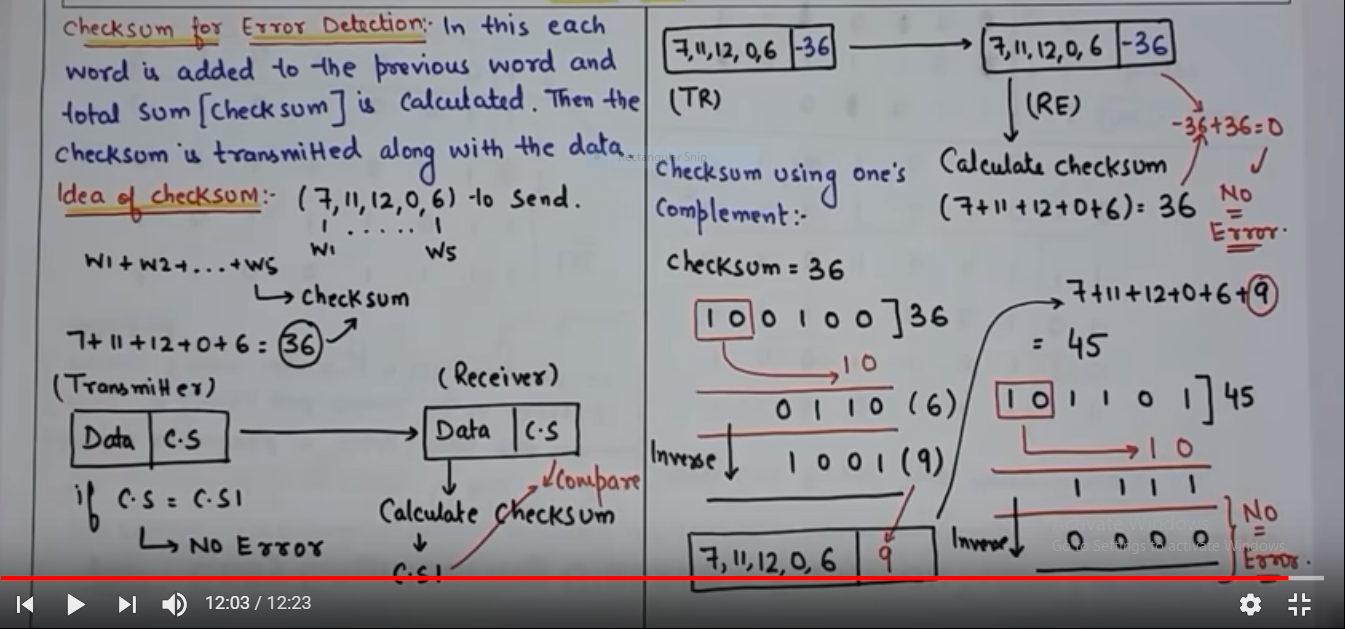 Checksum for Error Detection:- In this each
word is added to the previous word and
total sum [Checksum] is calculated. Then the
checksum is transmitted along with the data.
Idea of checksum:- (7, 11, 12, 0, 6) to send.
W1 W5
W1 + W2 + ... + W5
Checksum
7 + 11 + 12 + 0 + 6 = 36
(Transmitter)
(Receiver)
Data C.S
Data C.S
Compare
if C.S = C.S1
No Error
Calculate Checksum
C.S1
7, 11, 12, 0, 6 -36
7, 11, 12, 0, 6 -36
(TR)
(RE)
-36+36=0
Calculate checksum
(7+11+12+0+6) = 36
No
Error.
Rectangular Snip
Checksum using one's
Complement:-
Checksum = 36
1 0 0 1 0 0 ] 36
1 0
0 1 1 0 (6)
Inverse 1 0 0 1 (9)
7, 11, 12, 0, 6 9
7+11+12+0+6+9
= 45
1 0 1 1 0 1 ] 45
1 0
1 1 1 1
Inverse 0 0 0 0
No
Error.
Activate Windows
Go to Settings to activate Windows.
12:03 / 12:23